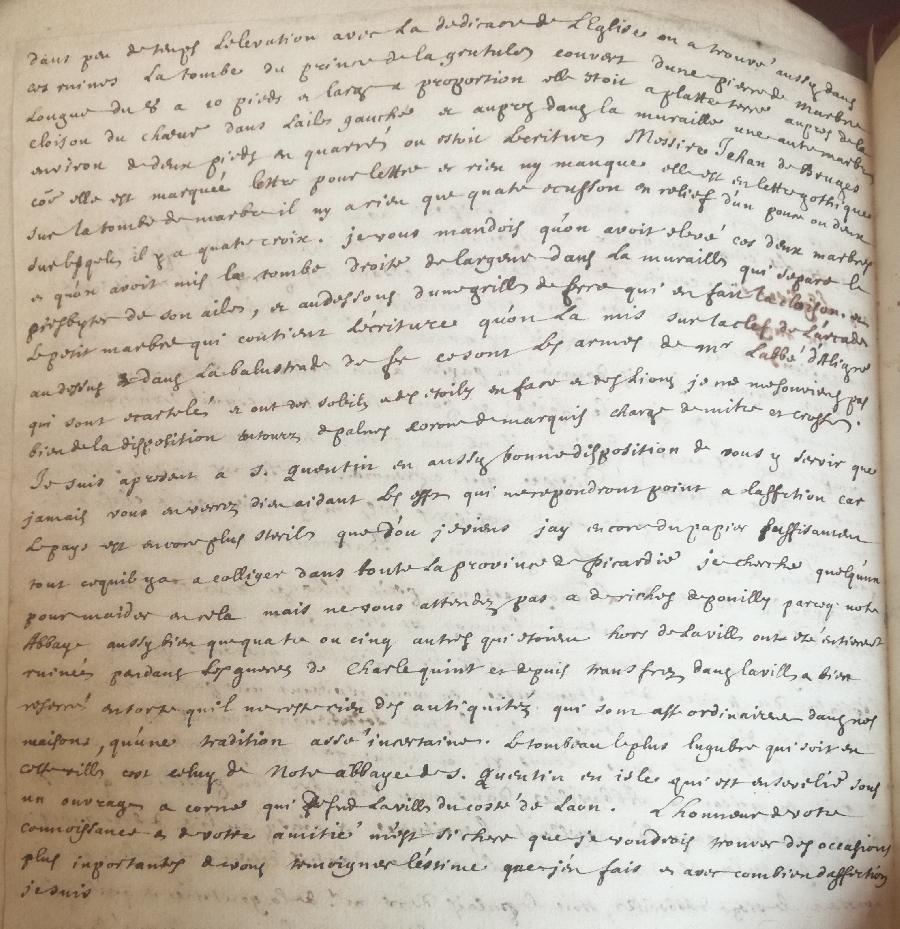 dans peu de temps L'elevation avec La dedicace de L'Eglise on a trouvé aussy dans
ces ruines La tombe du prince de la grutules couvert d'une pierre de marbre
Longue du 8 a 10 pieds et large a proportion elle étoit a platte terre auprez de la
cloison du chœur dans L'aile gauche et auprez dans la muraille une autre marbre
environ de deux pieds en quarrés ou estoit L'ecriture Messire Jehan de Bruges
coē elle est marqueé lettre pour lettre et rien ny manque elle est en lettre gothique
sur la tombe de marbre il ny a rien que quatre ecusson en relief d'un pouce ou deux
sur lesquels il y a quatre croix. je vous mandois qu'on avoit elevé ces deux marbres
et qu'on avoit mis la tombe droite de largeur dans La muraille qui separe le
presbyter de son aile, et au dessous d'une grille de ferre qui en fait la cloison. et
Le petit marbre qui contient L'écriture qu'on La mis sur la clef de L'arcade
au dessus dans La balustrade de fer ce sont Les armes de mr L'abbé d'Aligre
qui sont ecartelés et ont des soleils et des étoiles en face et des Lions je ne me souviens pas
bien de la disposition entourez de palmes corone de marquis charge de mitre et crosse.
Je suis a present a S. Quentin en aussy bonne disposition de vous y servir que
jamais vous en verrez dieu aidant Les effet qui ne repondront point a L'affection car
Le pays est encore plus sterile que d'ou je viens jay encore du papier suffisamen
tout ce quil y a a colliger dans toute La province de picardie je cherche quelqu'un
pour m'aider en cela mais ne vous attendez pas a de riches depouilles parceq. notre
Abbaye aussy bien que quatre ou cinq autres qui étoient hors de La ville ont été entierent
ruinés pendans Les guerres de Charle quint et depuis transferez dans la ville a bien
reserré en sorte qu'il ne reste rien des antiquitéz qui sont asse ordinairem dans nos
maisons, qu'une tradition assé incertaine. Le tombeau le plus lugubre qui soit en
cette ville est celuy de Notre abbaye de S. Quentin en isle qui est ensevelie sous
un ouvrage a corne qui defend La ville du costé de Laon. L'honneur de votre
connoissance et de votre amitié m'est si chere que je voudrois trouver des occasions
plus inportantes de vous temoigner L'éstime que j'en fais et avec combien d'affection
je suis